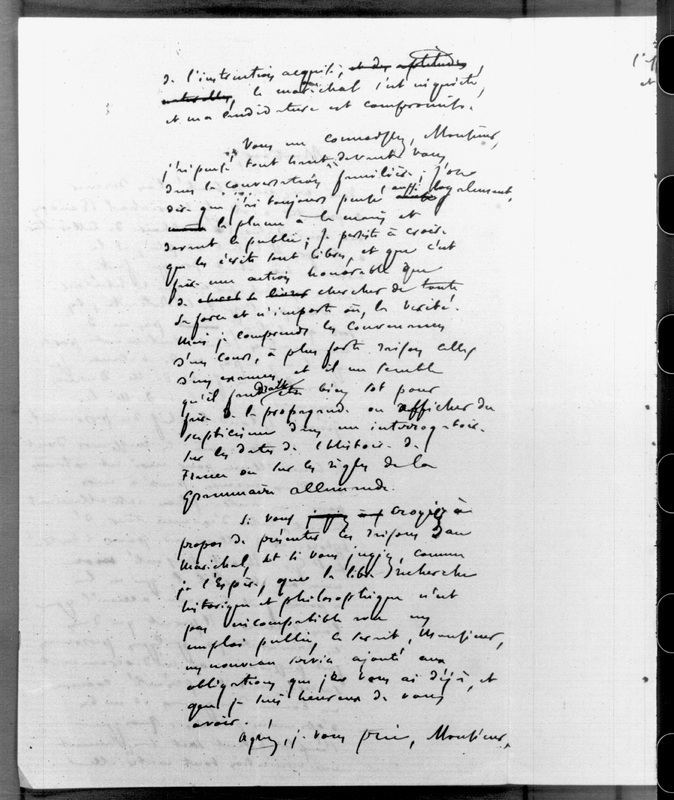 de l'instruction acquise, et des aptitudes,
naturelles, le maréchal s'est inquiété,
et ma candidature est compromise.
Vous me connaissez, Monsieur,
j'ai parlé tout haut devant vous
dans la conversation familière; j'ose
dire que j'ai toujours parlé aussi loyalement,
la plume à la main et
devant le public; je persiste à croire
que les écrits sont libres, et que c'est
faire une action honorable que
de chercher de toute
sa force et n'importe où, la vérité.
Mais je comprends les convenances
d'un cours, à plus forte raison celles
d'un examen, et il me semble
qu'il faudrait être bien sot pour
faire de la propagande ou afficher du
scepticisme dans un interrogatoire
sur les dates de l'histoire de
France ou sur les règles de la
Grammaire allemande.
Si vous jugiez à croyez à
propos de présenter les raisons au
Maréchal, et si vous jugez, comme
je l'espère, que la libre recherche
historique et philosophique n'est
pas incompatible avec un
emploi public, ce serait, Monsieur,
un nouveau service ajouté aux
obligations que je vous ai déjà, et
que je suis heureux de vous
avoir.
Agréez, je vous prie, Monsieur,